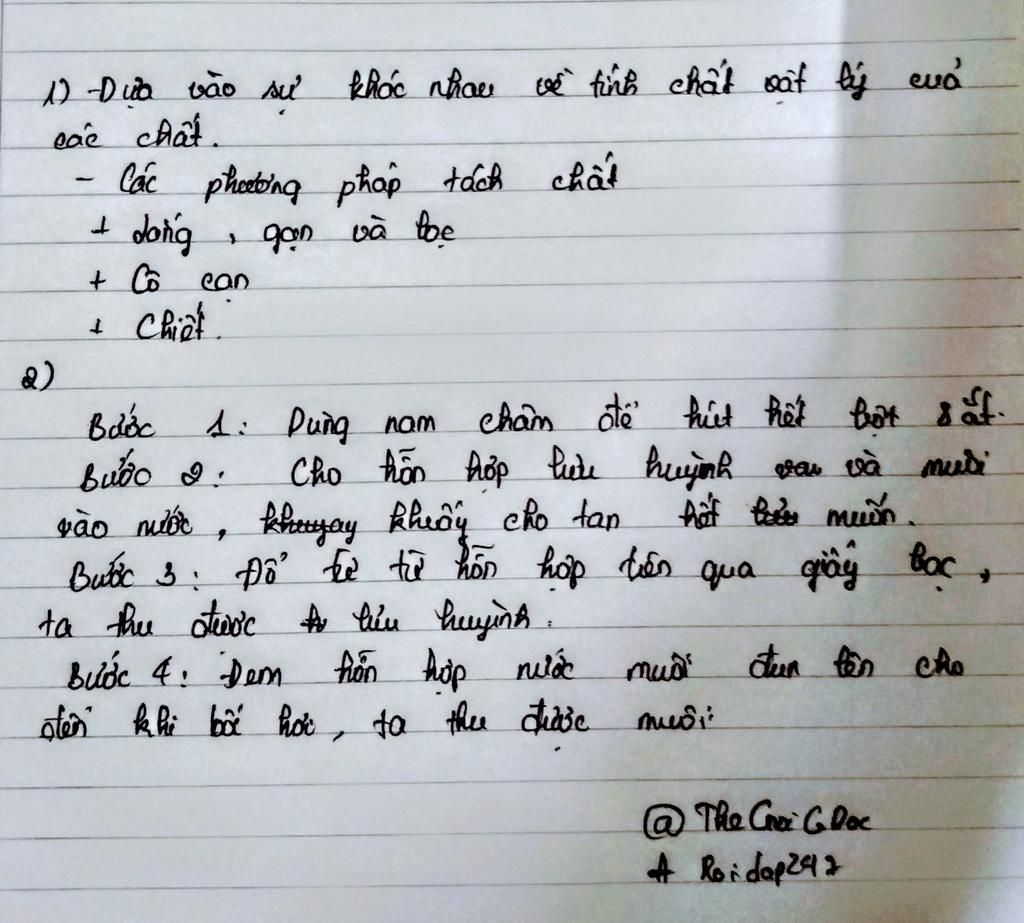 1) - Dựa vào sự khác nhau về tính chất vật lý cuả
các chất.
- Các phương pháp tách chất
+ dắng, gạn và lọc
+ Cô cạn
+ Chiết.
2)
Bước 1: Dùng nam châm để hút hết bột sắt.
Bước 2: Cho hỗn hợp lưu huỳnh và muối
vào nước, khuấy cho tan hết muốn.
Bước 3: Đổ từ từ hỗn hợp trên qua giấy lọc,
ta thu được lưu huỳnh.
Bước 4: Đem hỗn hợp nước muối đun lên cho
đến khi bốc hơi, ta thu được muối.